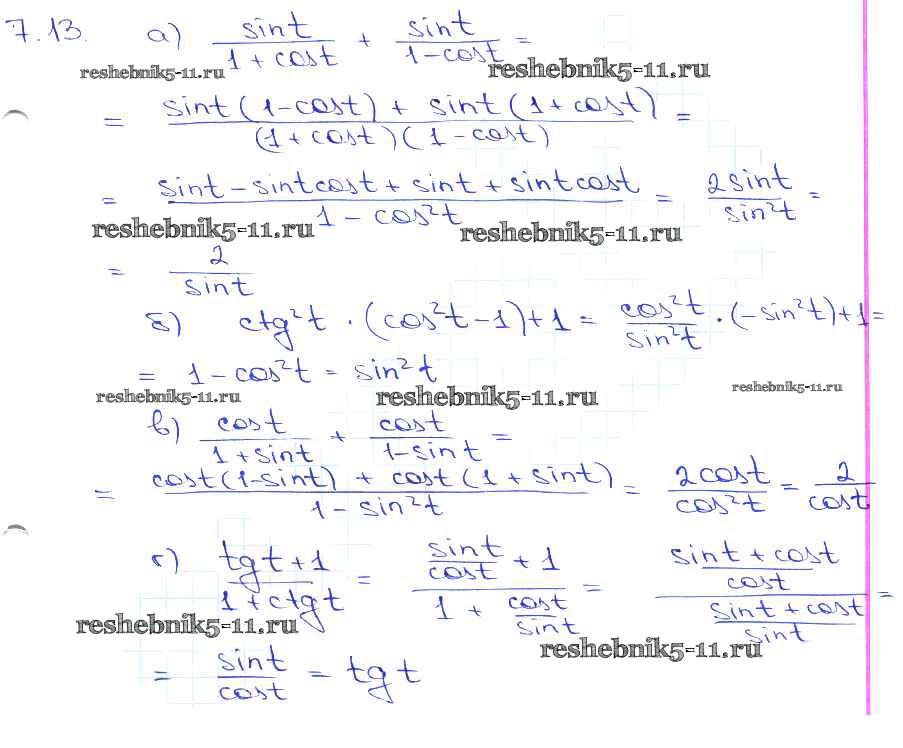 7.13. а) sint/(1 + cost) + sint/(1 - cost) =
reshebnik5-11.ru reshebnik5-11.ru
= (sint(1 - cost) + sint(1 + cost))/((1 + cost)(1 - cost)) =
= (sint - sintcost + sint + sintcost)/(1 - cos²t) = 2sint/sin²t =
reshebnik5-11.ru reshebnik5-11.ru
= 2/sint
б) ctg²t · (cos²t - 1) + 1 = cos²t/sin²t · (-sin²t) + 1 =
= 1 - cos²t = sin²t
reshebnik5-11.ru reshebnik5-11.ru reshebnik5-11.ru
в) cost/(1 + sint) + cost/(1 - sint) =
= (cost(1 - sint) + cost(1 + sint))/(1 - sin²t) = 2cost/cos²t = 2/cost
г) (tgt + 1)/(1 + ctgt) = (sint/cost + 1)/(1 + cost/sint) = ((sint + cost)/cost)/((sint + cost)/sint) =
reshebnik5-11.ru reshebnik5-11.ru
= sint/cost = tgt